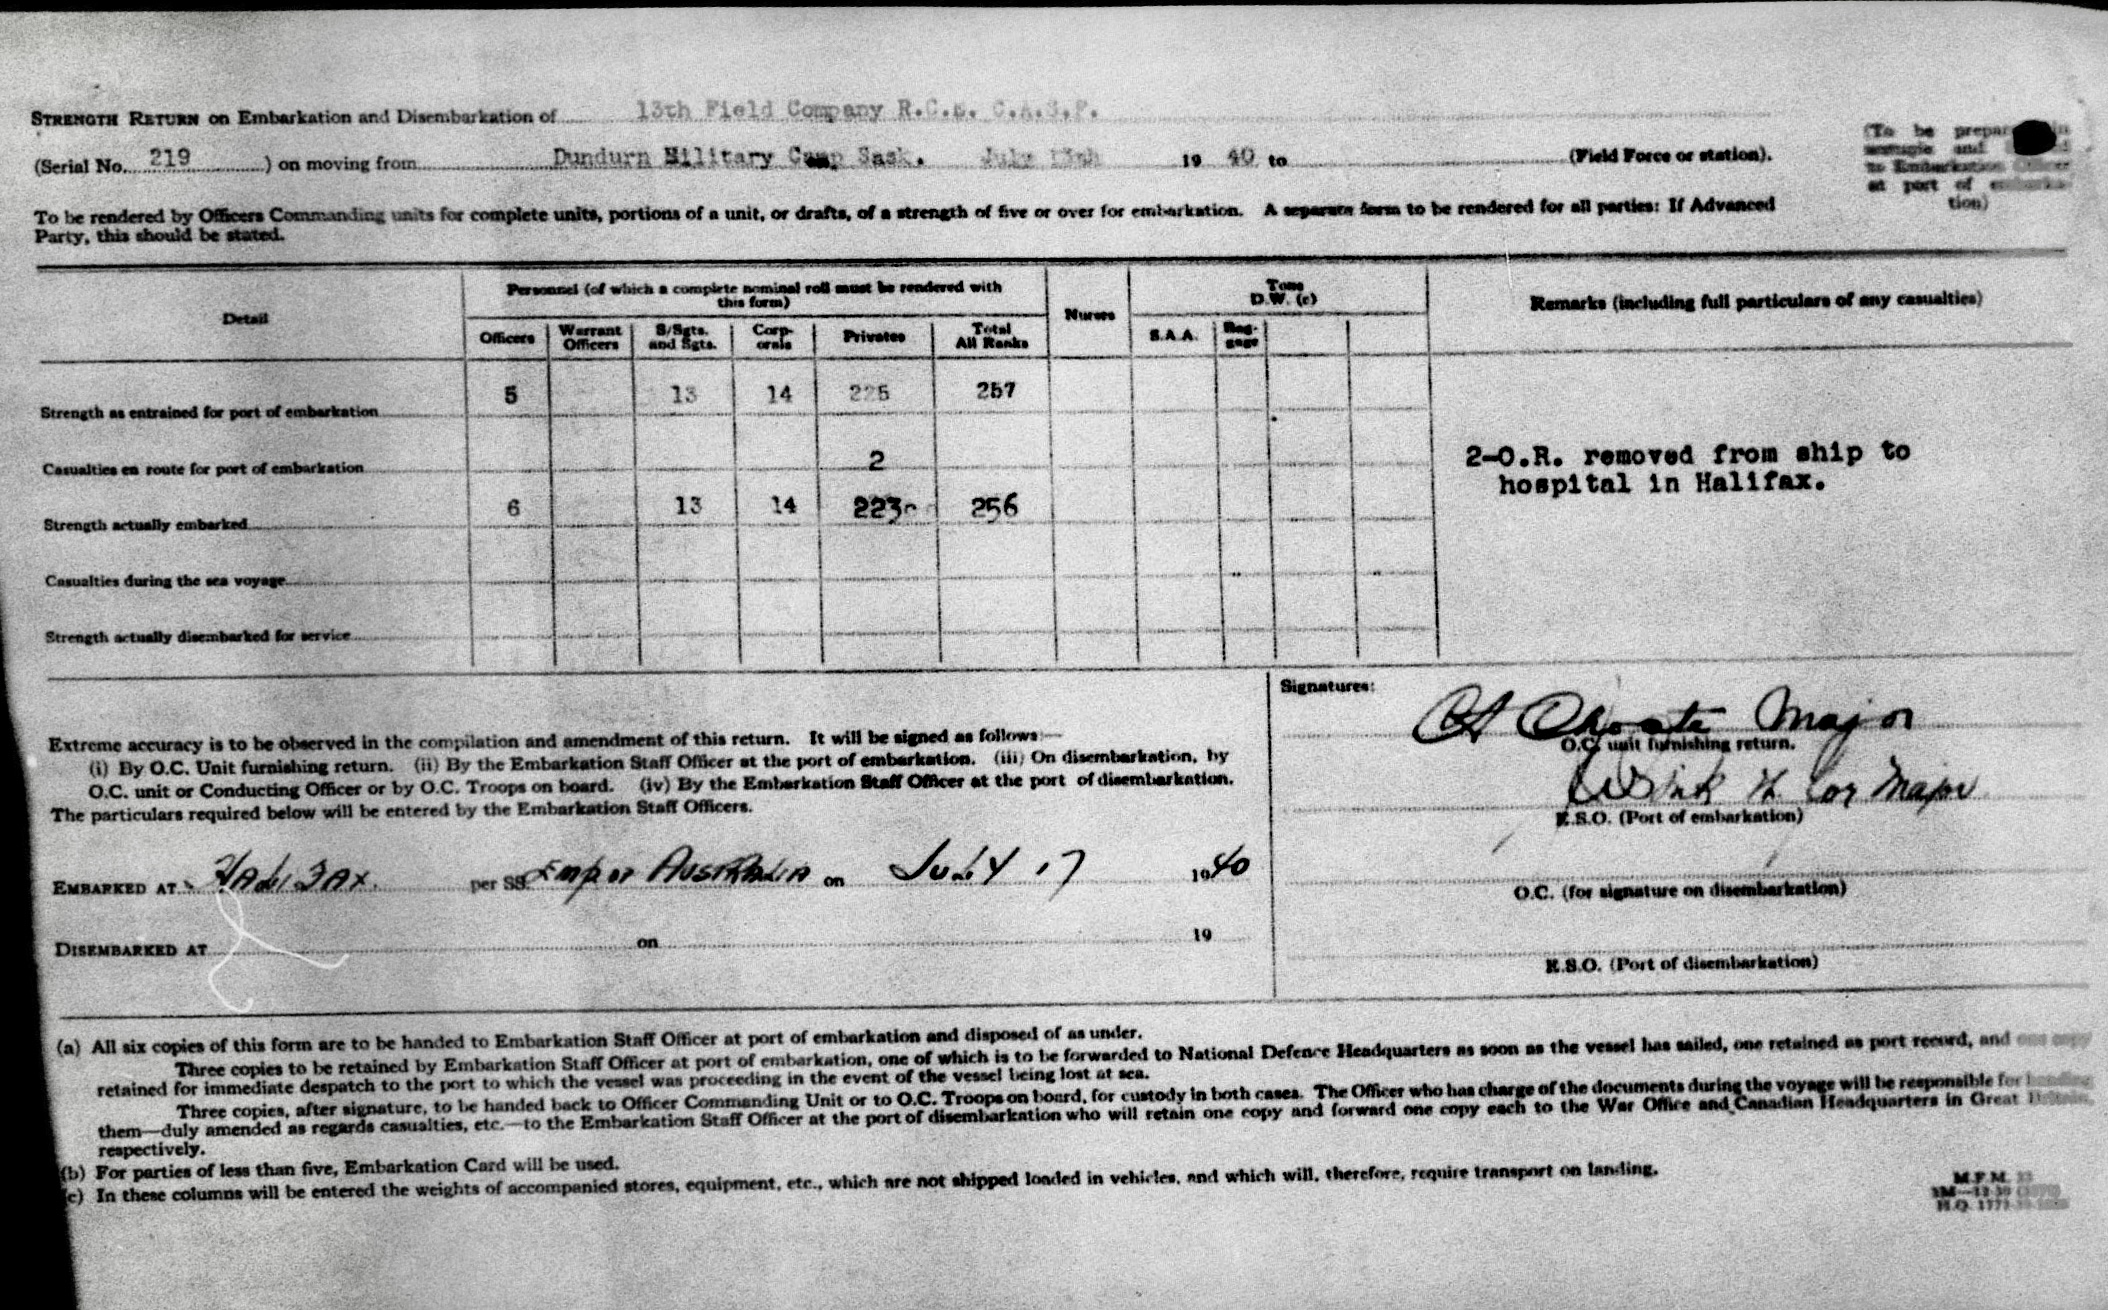 STRENGTH RETURN on Embarkation and Disembarkation of 13th Field Company R.C.E. C.A.S.F.
(Serial No. 219 ) on moving from Dundurn Military Camp Sask. July 13th 19 40 to (Field Force or station).
(To be prepared in
and
to Embarkation Officer
at port of embarka-
tion)
To be rendered by Officers Commanding units for complete units, portions of a unit, or drafts, of a strength of five or over for embarkation. A separate form to be rendered for all parties: If Advanced
Party, this should be stated.
Detail
Personnel (of which a complete nominal roll must be rendered with
this form)
Officers
Warrant
Officers
S/Sgts.
and Sgts.
Corp-
orals
Privates
Total
All Ranks
Nurses
Tons
D.W. (c)
S.A.A.
Bag-
gage
Remarks (including full particulars of any casualties)
Strength as entrained for port of embarkation 5 13 14 225 257
Casualties en route for port of embarkation 2
Strength actually embarked 6 13 14 223 256
Casualties during the sea voyage
Strength actually disembarked for service
2-O.R. removed from ship to
hospital in Halifax.
Extreme accuracy is to be observed in the compilation and amendment of this return. It will be signed as follows:—
(i) By O.C. Unit furnishing return. (ii) By the Embarkation Staff Officer at the port of embarkation. (iii) On disembarkation, by
O.C. unit or Conducting Officer or by O.C. Troops on board. (iv) By the Embarkation Staff Officer at the port of disembarkation.
The particulars required below will be entered by the Embarkation Staff Officers.
EMBARKED AT Halifax per SS. Emp of Australia on July 17 1940
DISEMBARKED AT on 19
Signatures:
Choate Major
O.C. unit furnishing return.
for Major
E.S.O. (Port of embarkation)
O.C. (for signature on disembarkation)
E.S.O. (Port of disembarkation)
(a) All six copies of this form are to be handed to Embarkation Staff Officer at port of embarkation and disposed of as under.
Three copies to be retained by Embarkation Staff Officer at port of embarkation, one of which is to be forwarded to National Defence Headquarters as soon as the vessel has sailed, one retained as port record, and one copy
retained for immediate despatch to the port to which the vessel was proceeding in the event of the vessel being lost at sea.
Three copies, after signature, to be handed back to Officer Commanding Unit or to O.C. Troops on board, for custody in both cases. The Officer who has charge of the documents during the voyage will be responsible for handing
them—duly amended as regards casualties, etc.—to the Embarkation Staff Officer at the port of disembarkation who will retain one copy and forward one copy each to the War Office and Canadian Headquarters in Great Britain,
respectively.
(b) For parties of less than five, Embarkation Card will be used.
(c) In these columns will be entered the weights of accompanied stores, equipment, etc., which are not shipped loaded in vehicles, and which will, therefore, require transport on landing.
M.F.M.
H.Q. 1772